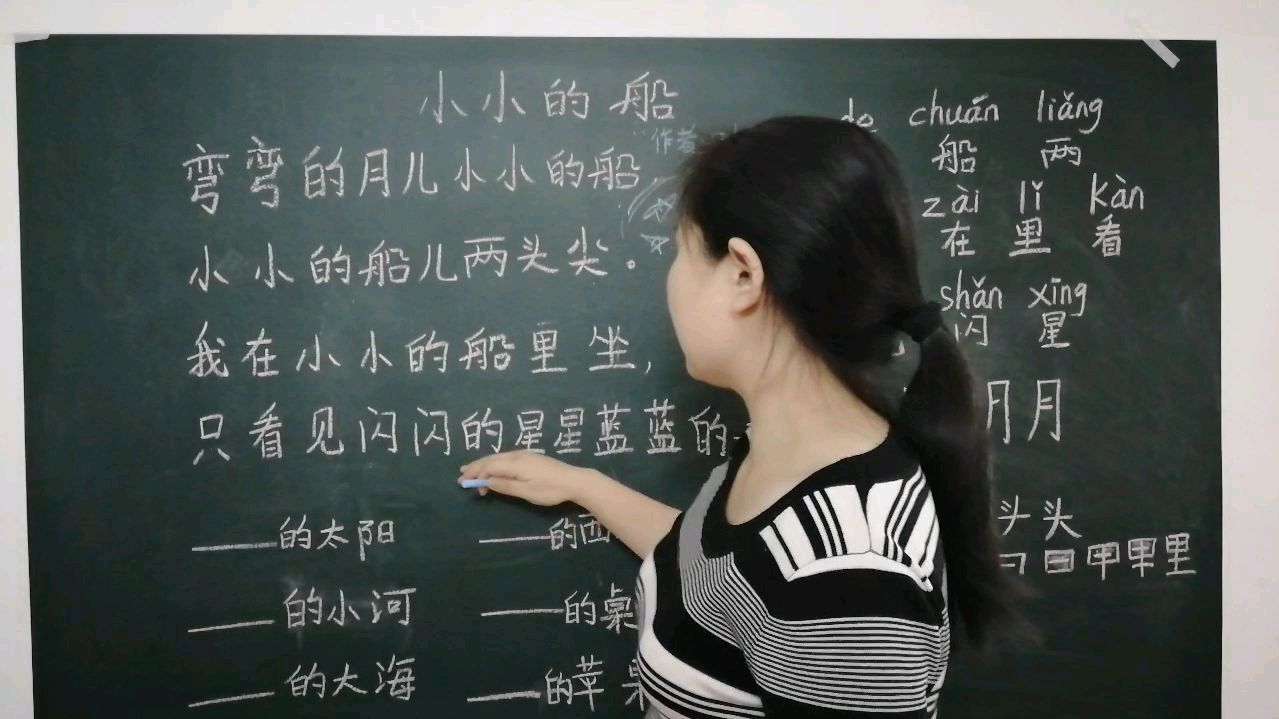 小小的船
作者
弯弯的月儿小小的船
小小的船儿两头尖。
我在小小的船里坐，
只看见闪闪的星星蓝蓝的
的太阳
的西
的小河
的
的大海
的苹果
de chuán liǎng
船 两
zài lǐ kàn
在 里 看
shǎn xīng
闪 星
月月
头头
曰甲甲里